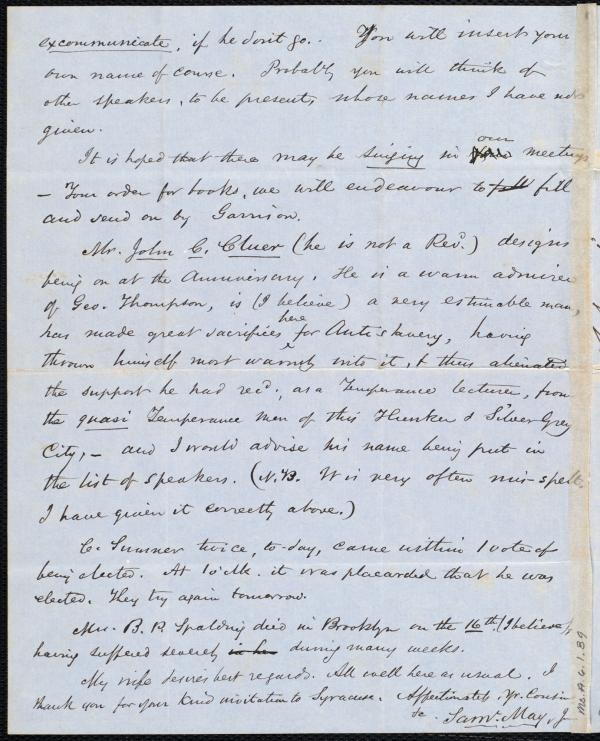 excommunicate, if he don't go. You will insert your
own name of course. Probably you will think of
other speakers, to be present, whose names I have not
given.
It is hoped that there may be singing in our meetings
— Your order for books, we will endeavour to fill
and send on by Garrison.
Mr. John C. Cluer (he is not a Revd.) designs
being on at the Anniversary. He is a warm admirer
of Geo. Thompson, is (I believe) a very estimable man,
has made great sacrifices here for Antislavery, having
thrown himself most warmly into it, & thus alienated
the support he had recd., as a Temperance lecturer, from
the quasi Temperance men of this Hunker & Silver Grey
City, — and I would advise his name being put in
the list of speakers. (N.B. It is very often mis-spelt.
I have given it correctly above.)
C. Sumner twice, to-day, came within 1 vote of
being elected. At 1 o'clk. it was placarded that he was
elected. They try again tomorrow.
Mrs. B. R. Spalding died in Brooklyn on the 16th. (I believe)
having suffered severely during many weeks.
My wife desires best regards. All well here as usual. I
thank you for your kind invitation to Syracuse. Affectionately Yr. Cousin
&c. Saml. May, Jr
Ms.A.9.1.89